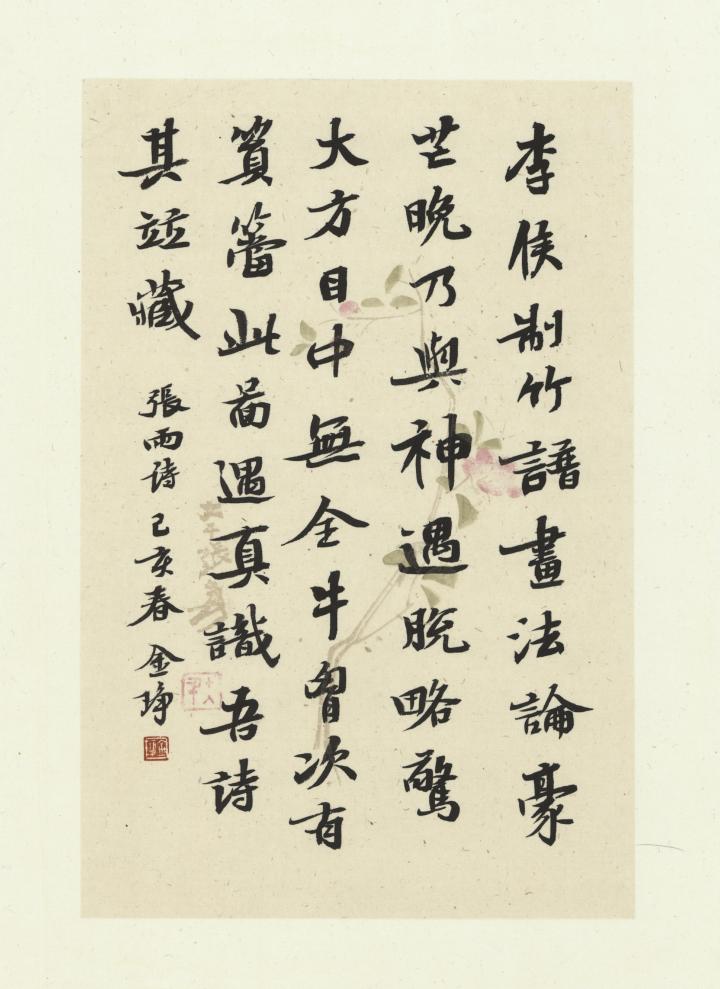 李侯制竹譜畫法論豪
芒晚乃與神遇脫略驚
大方目中無全牛胷次有
篔簹此啚遇真識吾詩
其竝藏 張雨詩 己亥春 金琤